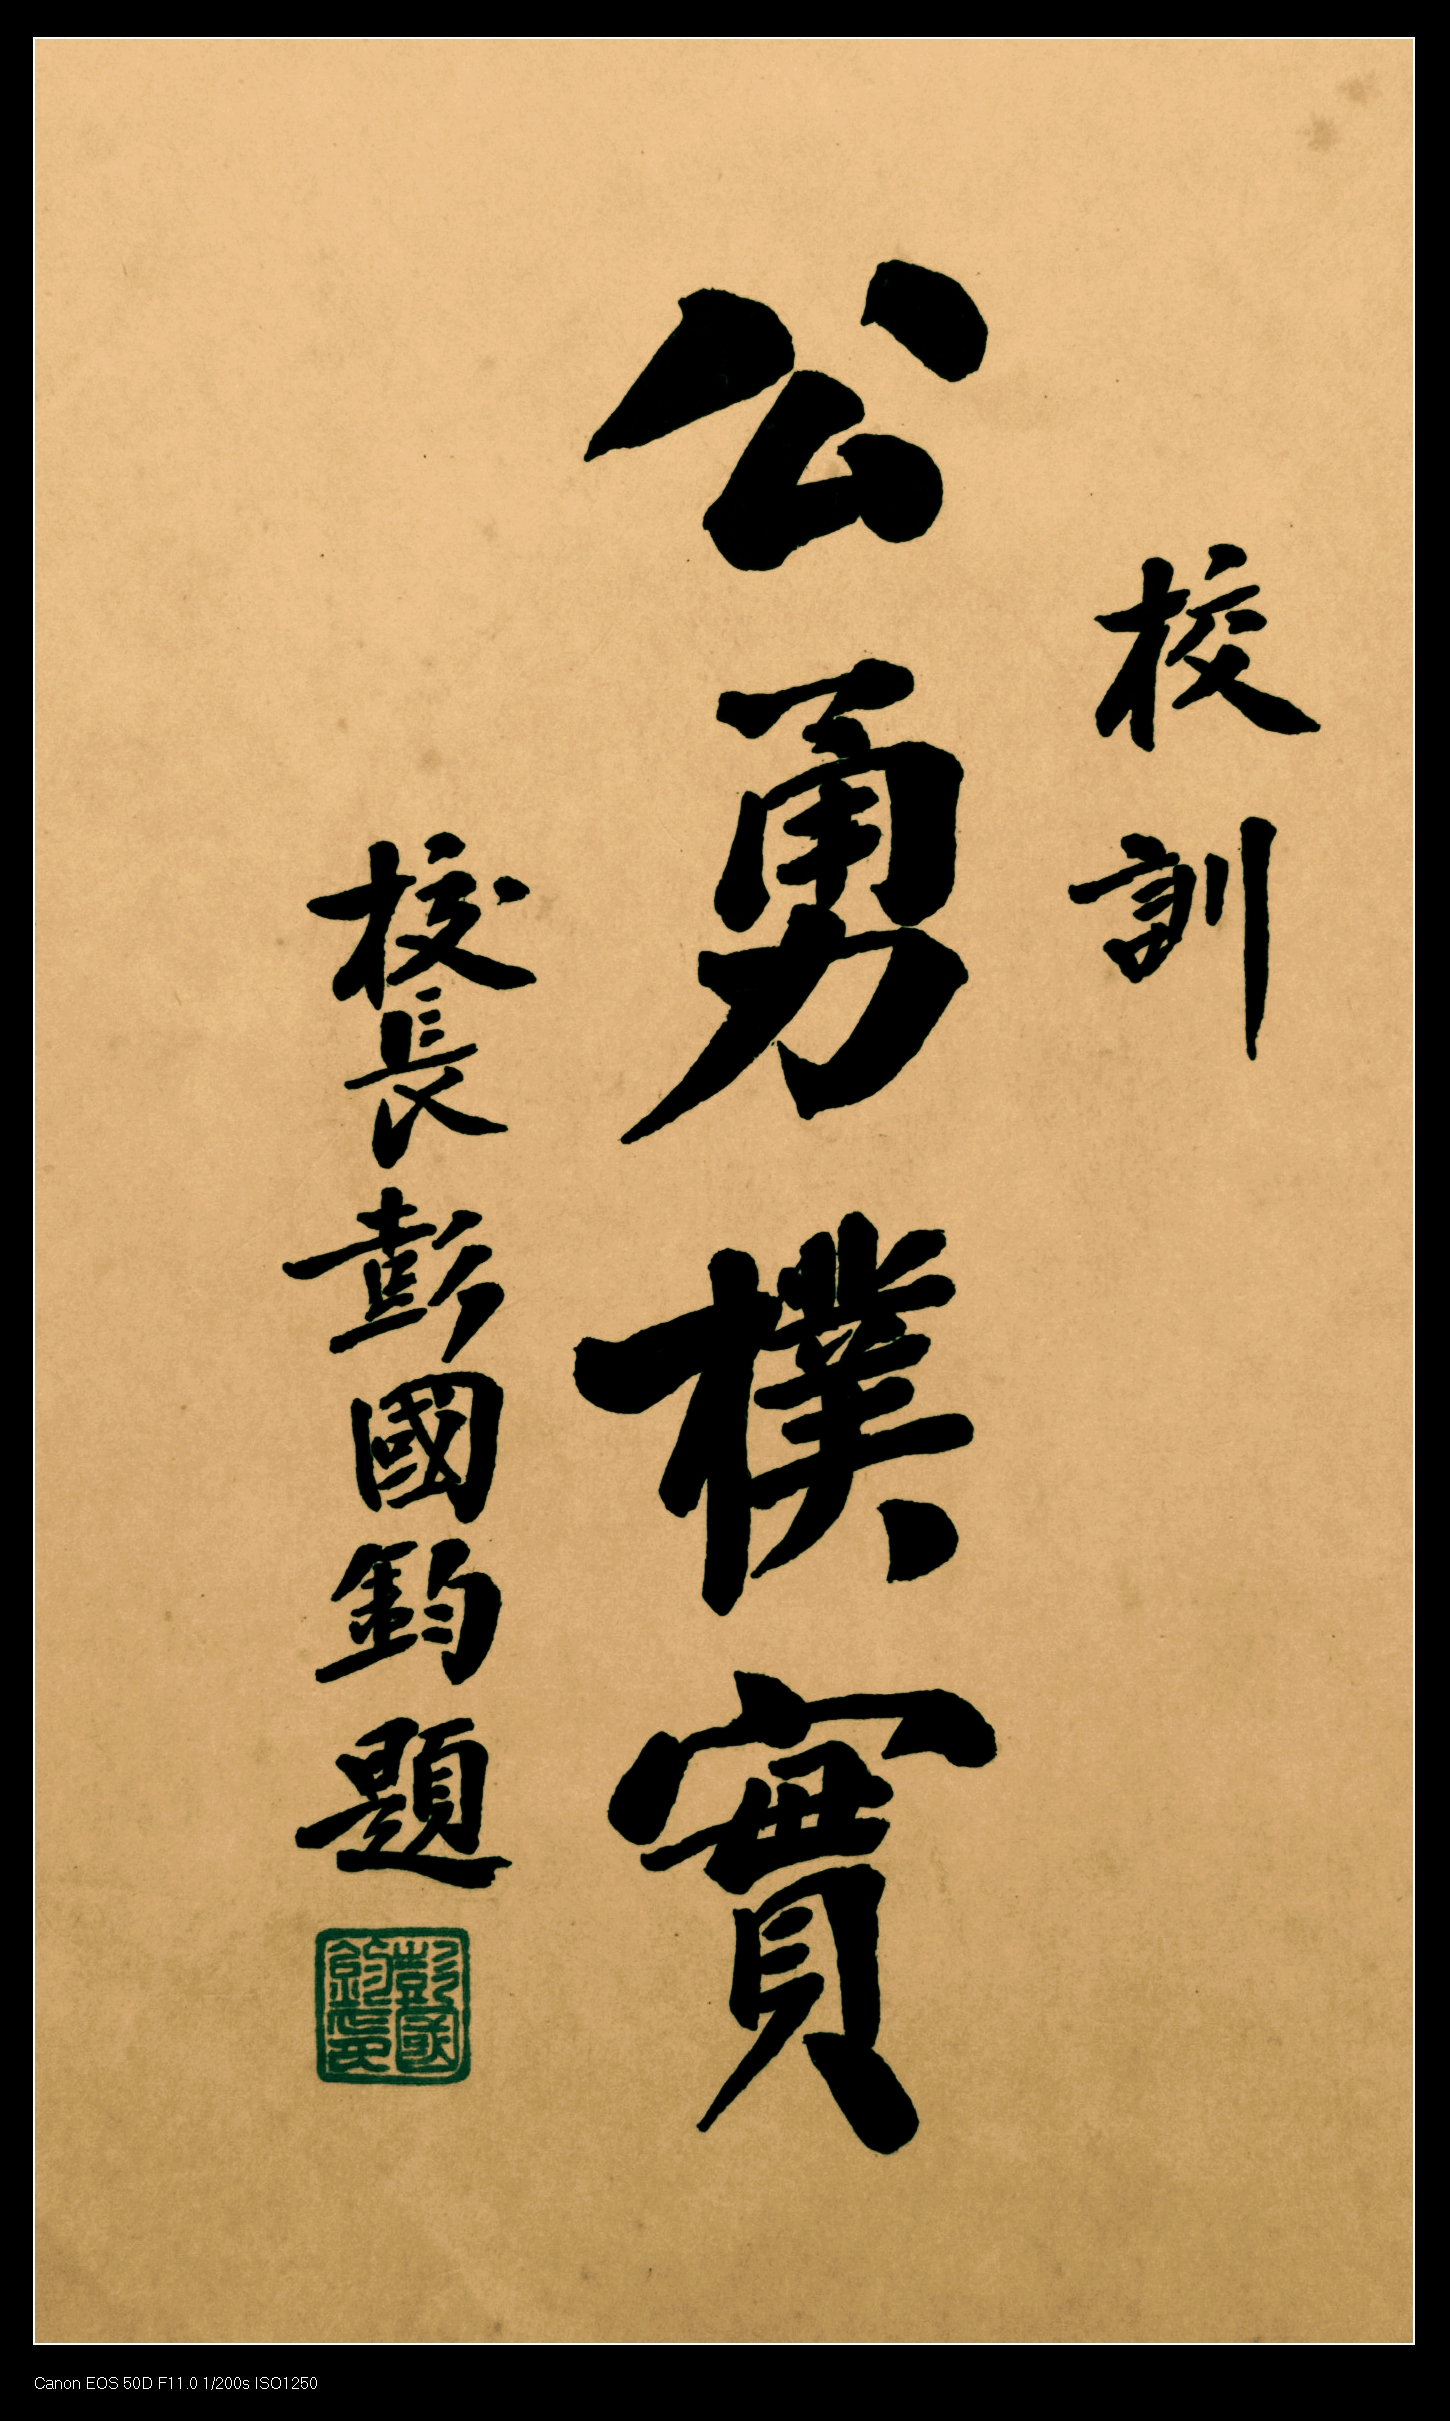 校訓
公勇樸實
校長彭國鈞題
彭國鈞印
Canon EOS 50D F11.0 1/200s ISO1250